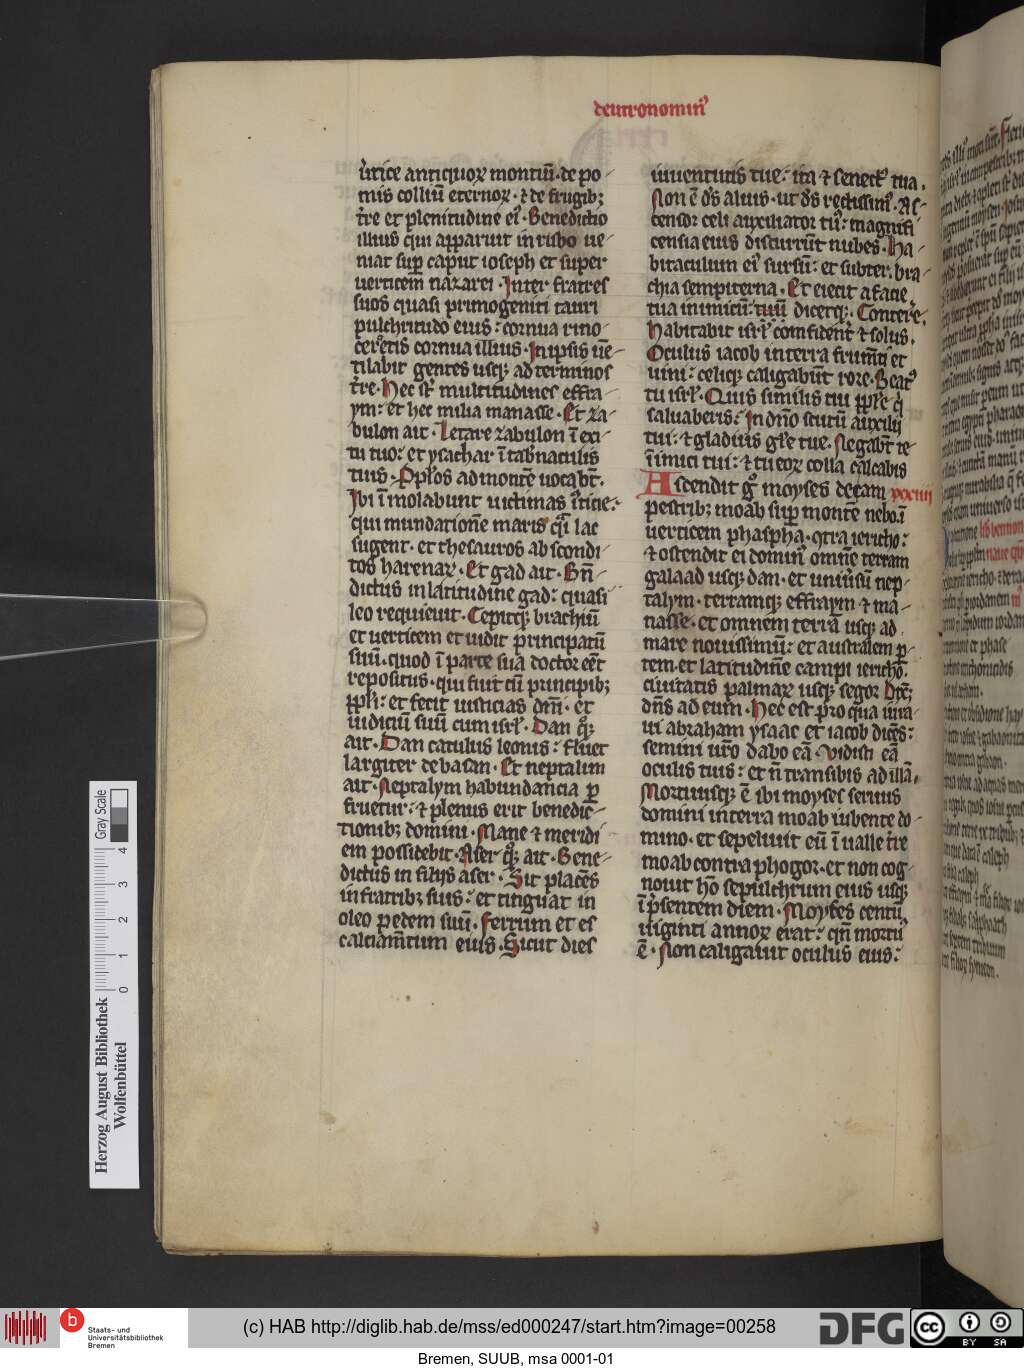 deutronomiũ
ũtice antiquoꝝ montiũ · de po
mis colliũ eternoꝝ · ⁊ de frugibꝫ
t̃re et plenitudine eiꝰ · Benedictio
illius qui apparuit in rubo ue
niat sup̲ caput ioseph et super
uerticem nazarei · Inter fratres
suos quasi primogeniti tauri
pulchritudo eius : cornua rino
cerotis cornua illius · In ipsis uẽ
tilabit gentes usqꝫ ad terminos
t̃re · Hec sт̃ multitudines effra
ym : et hec milia manasse · Et za
bulon ait · Letare zabulon ĩ exi
tu tuo : et ysachar ĩ tab̃naculis
tuis · Pp̃los ad montẽ uocabт̃ ·
Ibi ĩmolabunt uictimas iͭticie ·
qui mundationẽ maris q̃i lac
sugent · et thesauros abscondi
tos harenaꝝ · Et gad ait · Bñ
dictus in latitudine gad : quasi
leo requieuit · Cepitqꝫ brachiũ
et uerticem et uidit principatũ
suũ · quod ĩ parte sua doctor eẽt
repositus · qui fuit cũ principibꝫ
pp̃li : et fecit iusticias dñi · et
iudiciũ suũ cum isrl̃ · Dan qꝫ
ait · Dan catulus leonis : fluet
largiter de basan · Et neptalim
ait · Neptalym habundancia p̲
fruetur : ⁊ plenus erit benedic
tionibꝫ domini · Mane ⁊ meridi
em possidebit · Aser qꝫ ait · Bene
dictus in filijs aser · Sit placẽs
in fratribꝫ suis : et tinguat in
oleo pedem suũ · Ferrum et es
calciam̃tum eius · Sicut dies
iuuentutis tue : ita ⁊ senectꝰ tua ·
Non ẽ d̃s alius · ut d̃s rectissimi · As
censor celi auxiliator tuꝰ : magnifi
censia eius discurrũt nubes · Ha
bitaculum eiꝰ sursũ : et subter · bra
chia sempiterna · Et eiecit a facie
tua inimicũ tuũ dicetqꝫ · Contere ·
Habitabit isrl̃ confident̃ ⁊ solus ·
Oculus iacob in terra frum̃ti et
uini : celiqꝫ caligabũt rore · Beatꝰ
tu isrl̃ · Quis similis tui pp̃le q̃
saluaberis : In dño scutũ auxilij
tui : ⁊ gladius gl̃e tue · Negabт̃ te
ĩimici tui : ⁊ tu eoꝝ colla calcabis
Ascendit gͦ moyses de cam xxxiiii
pestribꝫ moab sup̲ montẽ nebo · ĩ
uerticem phaspha · ꝯtra iericho :
⁊ ostendit ei dominꝰ omnẽ terram
galaad usqꝫ dan · et uniũsũ nep
talym · terramqꝫ effraym ⁊ ma
nasse · et omnem terrã usqꝫ ad
mare nouissimũ : et australem p̲
tem et latitudinẽ campi iericho ·
ciuitatis palmaꝝ usqꝫ segor Dix̃ꝫ
dñs ad eum · Hec est pro qua iura
ui abraham ysaac et iacob dicẽs :
semini tuo dabo eã · Vidisti eã
oculis tuis : et ñ transibis ad illã ·
Mortuusqꝫ ẽ ibi moyses seruus
domini in terra moab iubente do
mino · et sepeliuit eũ ĩ ualle t̃re
moab contra phogor · et non cog
nouit hõ sepulchrum eius usqꝫ
ĩ p̃sentem diem · Moyses centũ
uiginti annoꝝ erat : qñ mortuꝰ
ẽ · Non caligauit oculus eius :
Herzog August Bibliothek
Wolfenbüttel
0 1 2 3 4
Gray Scale
b
Staats- und
Universitätsbibliothek
Bremen
(c) HAB http://diglib.hab.de/mss/ed000247/start.htm?image=00258
DFG
cc BY SA
Bremen, SUUB, msa 0001-01